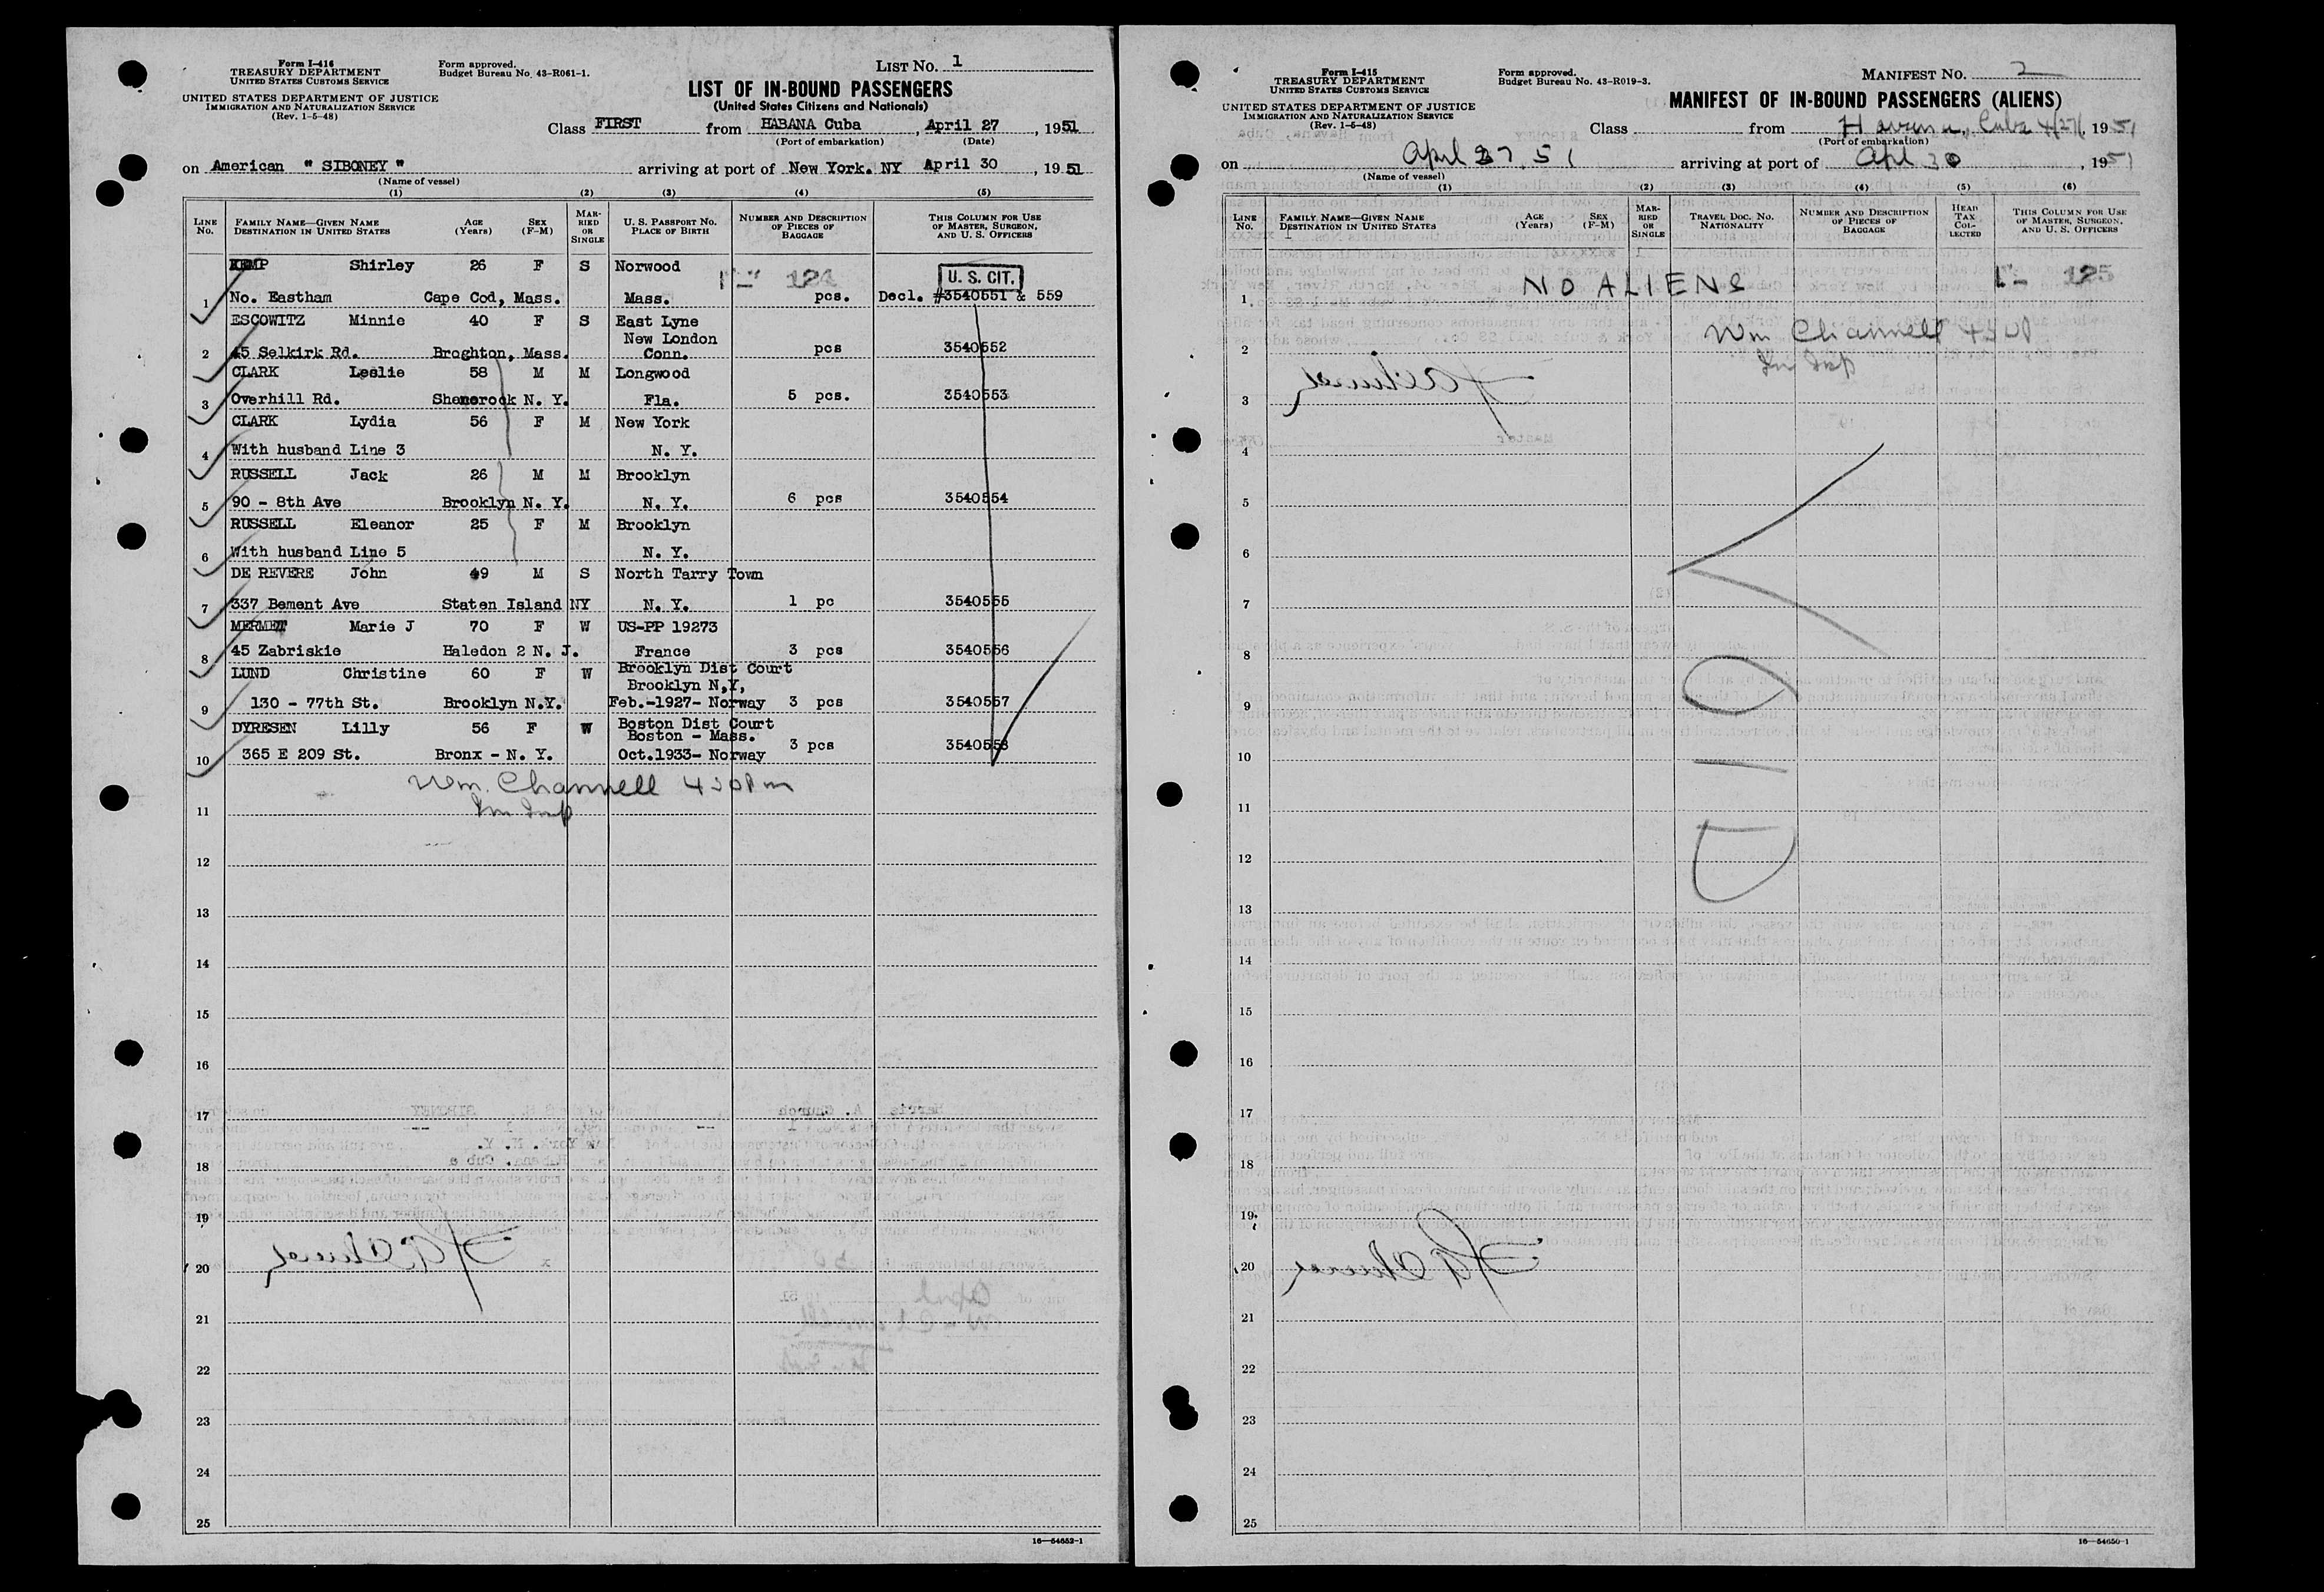 Form I-416
TREASURY DEPARTMENT
UNITED STATES CUSTOMS SERVICE
UNITED STATES DEPARTMENT OF JUSTICE
IMMIGRATION AND NATURALIZATION SERVICE
(Rev. 1-5-48)
Form approved.
Budget Bureau No. 43-R061-1.
LIST No. 1
LIST OF IN-BOUND PASSENGERS
(United States Citizens and Nationals)
Class FIRST from HABANA Cuba, April 27, 1951
(Port of embarkation) (Date)
on American " SIBONEY " arriving at port of New York. NY April 30, 1951
(Name of vessel)
(1) (2) (3) (4) (5)
LINE No. FAMILY NAME—GIVEN NAME DESTINATION IN UNITED STATES AGE (Years) SEX (F-M) MARRIED OR SINGLE U. S. PASSPORT No. PLACE OF BIRTH NUMBER AND DESCRIPTION OF PIECES OF BAGGAGE THIS COLUMN FOR USE OF MASTER, SURGEON, AND U. S. OFFICERS
KEMP Shirley 26 F S Norwood U. S. CIT.
1 No. Eastham Cape Cod, Mass. Mass. pcs. Decl. #3540551 & 559
ESCOWITZ Minnie 40 F S East Lyne
New London
2 45 Selkirk Rd. Broghton, Mass. Conn. pcs 3540552
CLARK Leslie 58 M M Longwood
3 Overhill Rd. Shenorock N. Y. Fla. 5 pcs. 3540553
CLARK Lydia 56 F M New York
4 With husband Line 3 N. Y.
RUSSELL Jack 26 M M Brooklyn
5 90 - 8th Ave Brooklyn N. Y. N. Y. 6 pcs 3540554
RUSSELL Eleanor 25 F M Brooklyn
6 With husband Line 5 N. Y.
DE REVERE John 49 M S North Tarry Town
7 337 Bement Ave Staten Island NY N. Y. 1 pc 3540555
MERMET Marie J 70 F W US-PP 19273
8 45 Zabriskie Haledon 2 N. J. France 3 pcs 3540556
LUND Christine 60 F W Brooklyn Dist Court
Brooklyn N,Y,
9 130 - 77th St. Brooklyn N.Y. Feb.-1927- Norway 3 pcs 3540557
DYRESEN Lilly 56 F W Boston Dist Court
Boston - Mass.
10 365 E 209 St. Bronx - N. Y. Oct.1933- Norway 3 pcs 3540558
Wm. Channell 430 Pm
Im Insp
11
12
13
14
15
16
17
18
19
20
21
22
23
24
25
16—54652-1
Form I-415
TREASURY DEPARTMENT
UNITED STATES CUSTOMS SERVICE
UNITED STATES DEPARTMENT OF JUSTICE
IMMIGRATION AND NATURALIZATION SERVICE
(Rev. 1-5-48)
Form approved.
Budget Bureau No. 43-R019-3.
MANIFEST No. 2
MANIFEST OF IN-BOUND PASSENGERS (ALIENS)
Class from Havana, Cuba 4/27/, 1951
(Port of embarkation)
on April 27, 51 arriving at port of Apl 30, 1951
(Name of vessel)
(1) (2) (3) (4) (5) (6)
LINE No. FAMILY NAME—GIVEN NAME DESTINATION IN UNITED STATES AGE (Years) SEX (F-M) MARRIED OR SINGLE TRAVEL DOC. No. NATIONALITY NUMBER AND DESCRIPTION OF PIECES OF BAGGAGE HEAD TAX COLLECTED THIS COLUMN FOR USE OF MASTER, SURGEON, AND U. S. OFFICERS
125
1 NO ALIENS
Wm Channell 430P
Im Insp
2
3
4
5
6
7
8
9
10
11
12
13
14
15
16
17
18
19
20
21
22
23
24
25
VOID
16—54650-1